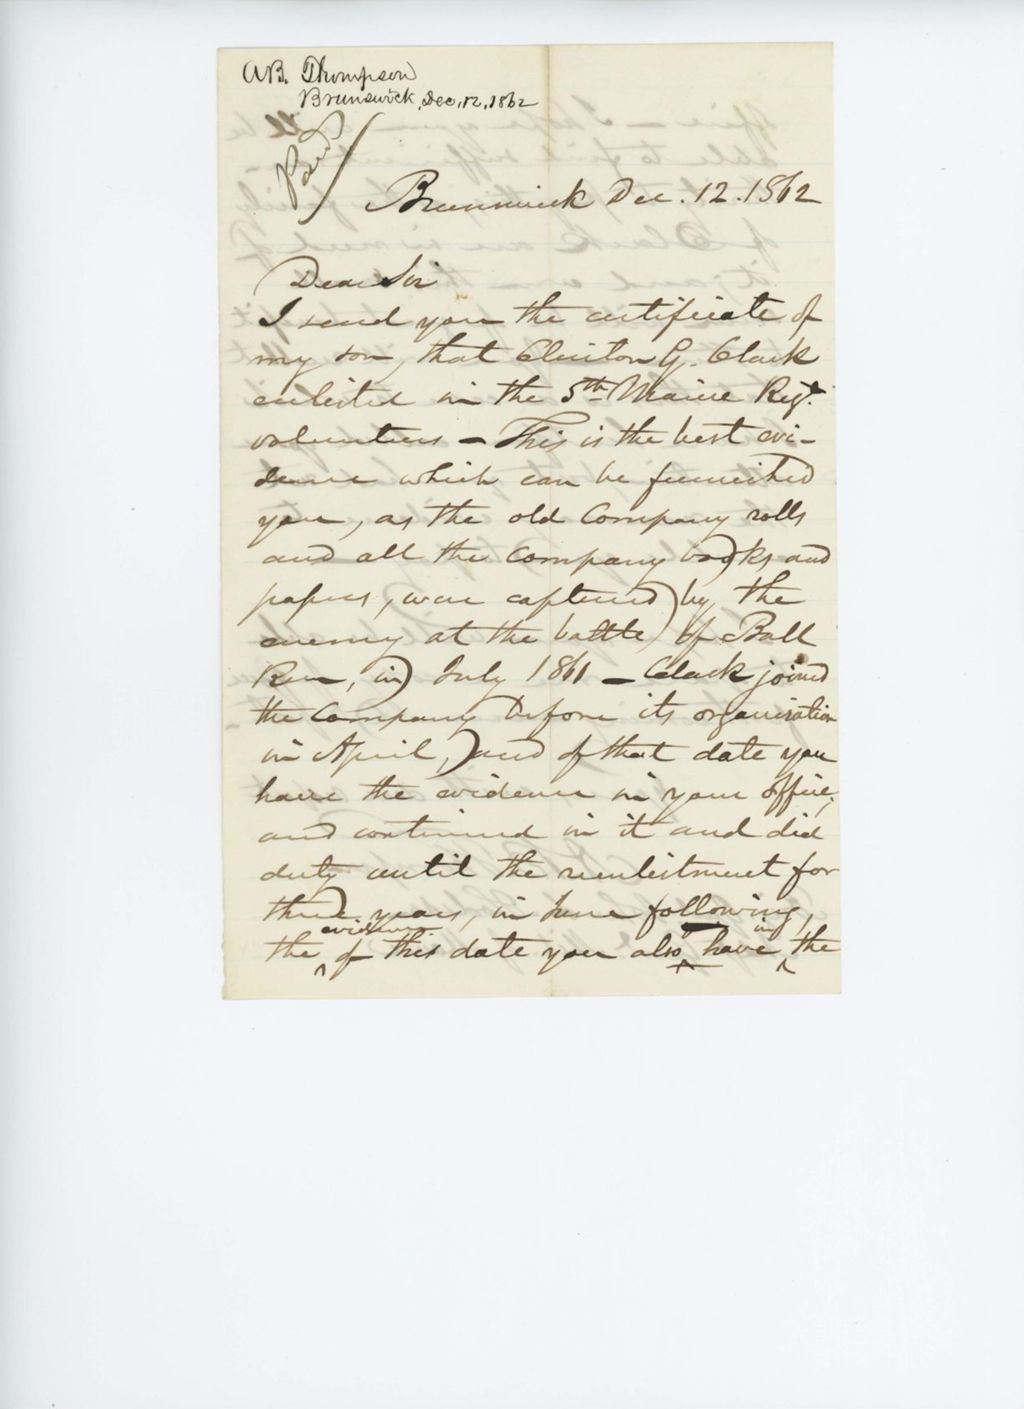 A.B. Thompson
Brunswick, Dec, 12, 1862
Paid
Brunswick Dec. 12. 1862
Dear Sir
I send you the certificate of
my son, that Clinton G. Clark
enlisted in the 5th Maine Regt.
volunteers – This is the best evi-
dence which can be furnished
you, as the old Company rolls
and all the company books and
papers, were captured by the
enemy at the battle of Bull
Run, in July 1861 – Clark joined
the Company before its organization
in April, and of that date you
have the evidence in your office,
and continued in it and did
duty until the reenlistment for
three years, in June following,
the evidence of this date you also have ing the